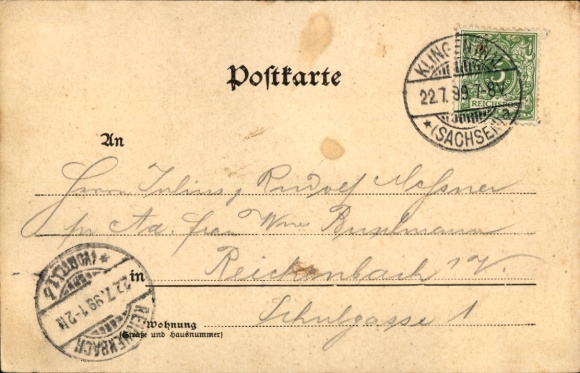 Postkarte
KLINGENTHAL
22.7.99.7-8V.
* (SACHSEN) a
5
REICHSPOST
An
Herrn Julius Rudolf Meßner
pr Ad. Frau Wwe
in Reichenbach i/V
Wohnung Schulgasse 1
(Straße und Hausnummer)
REICHENBACH
22.7.99.1-2N
* (VOGTL.) b